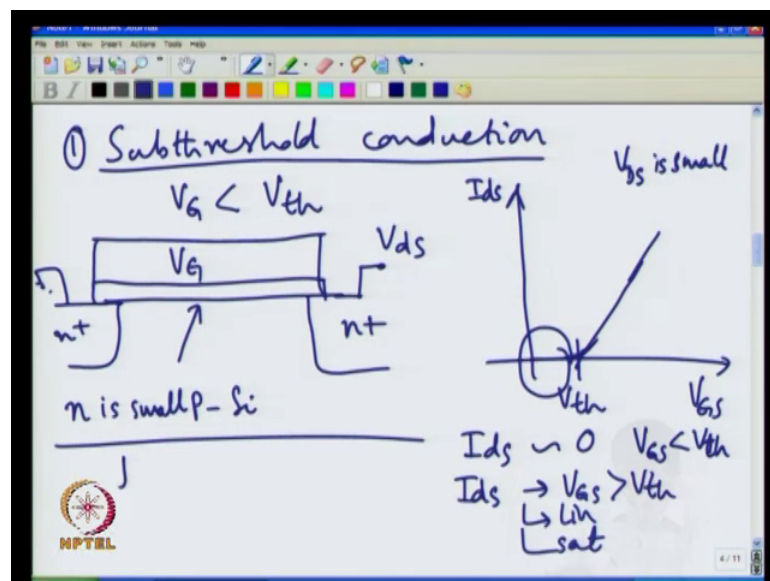 File Edit View Insert Actions Tools Help
B I
① Subthreshold conduction
V_G < V_th
V_G
V_ds
n+
n+
n is small p-Si
I_ds
V_DS is small
V_th
V_GS
I_ds ~ 0 V_GS < V_th
I_ds → V_GS > V_th
↳ Lin
↳ sat
NPTEL
4/11